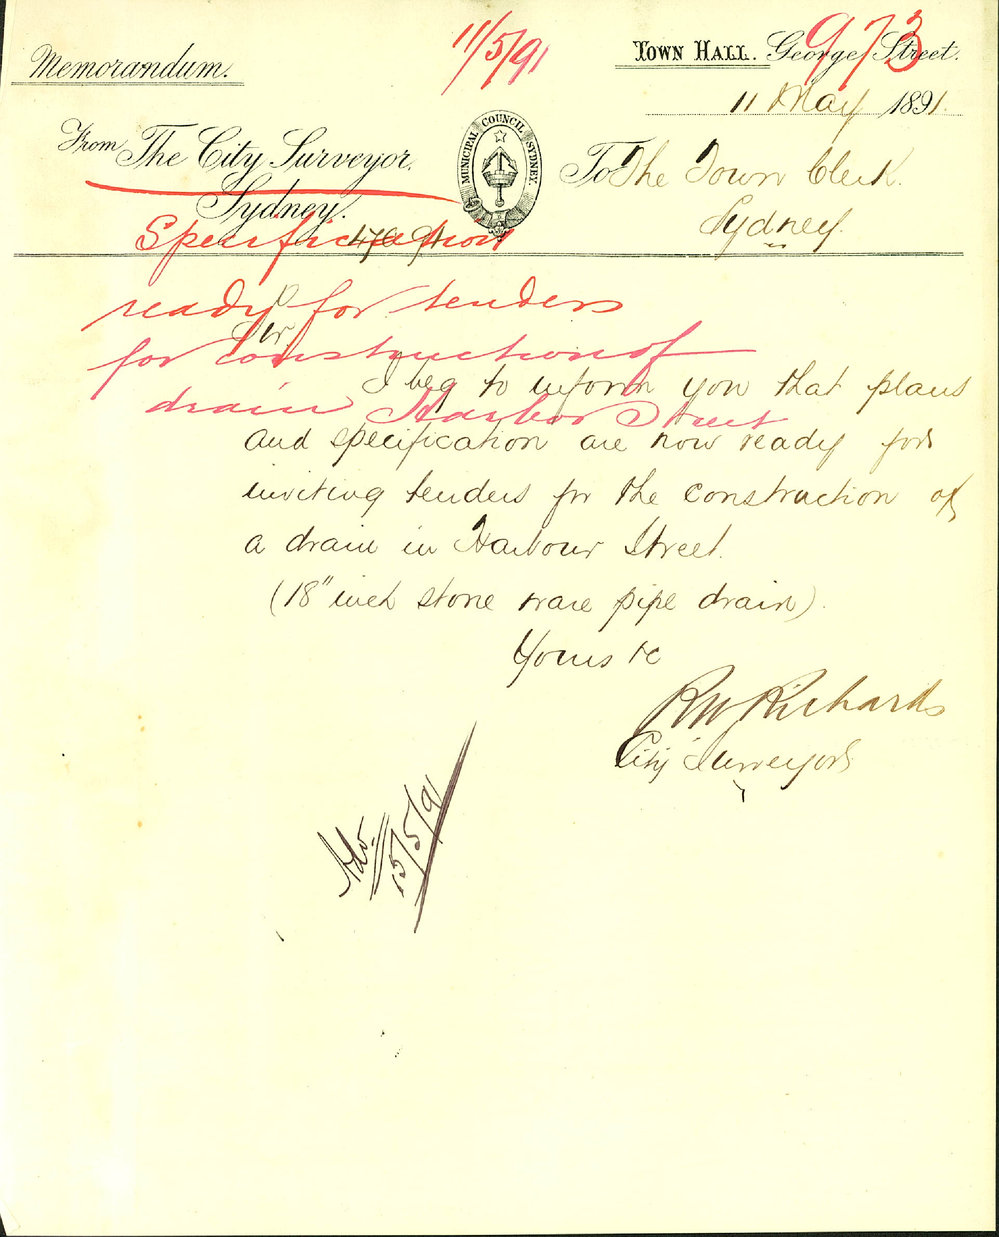 11/5/91
973
Memorandum.
TOWN HALL. George Street.
11 May 1891.
From The City Surveyor,
Sydney.
MUNICIPAL COUNCIL SYDNEY.
To The Town Clerk.
Sydney.
Specification
ready for tenders
for construction of
drain Harbor Street
Sir
I beg to inform you that plans
and specification are now ready for
inviting tenders for the construction of
a drain in Harbour Street.
(18" inch stone ware pipe drain).
Yours &c
RW Richards
City Surveyor
Adv.
15/5/91